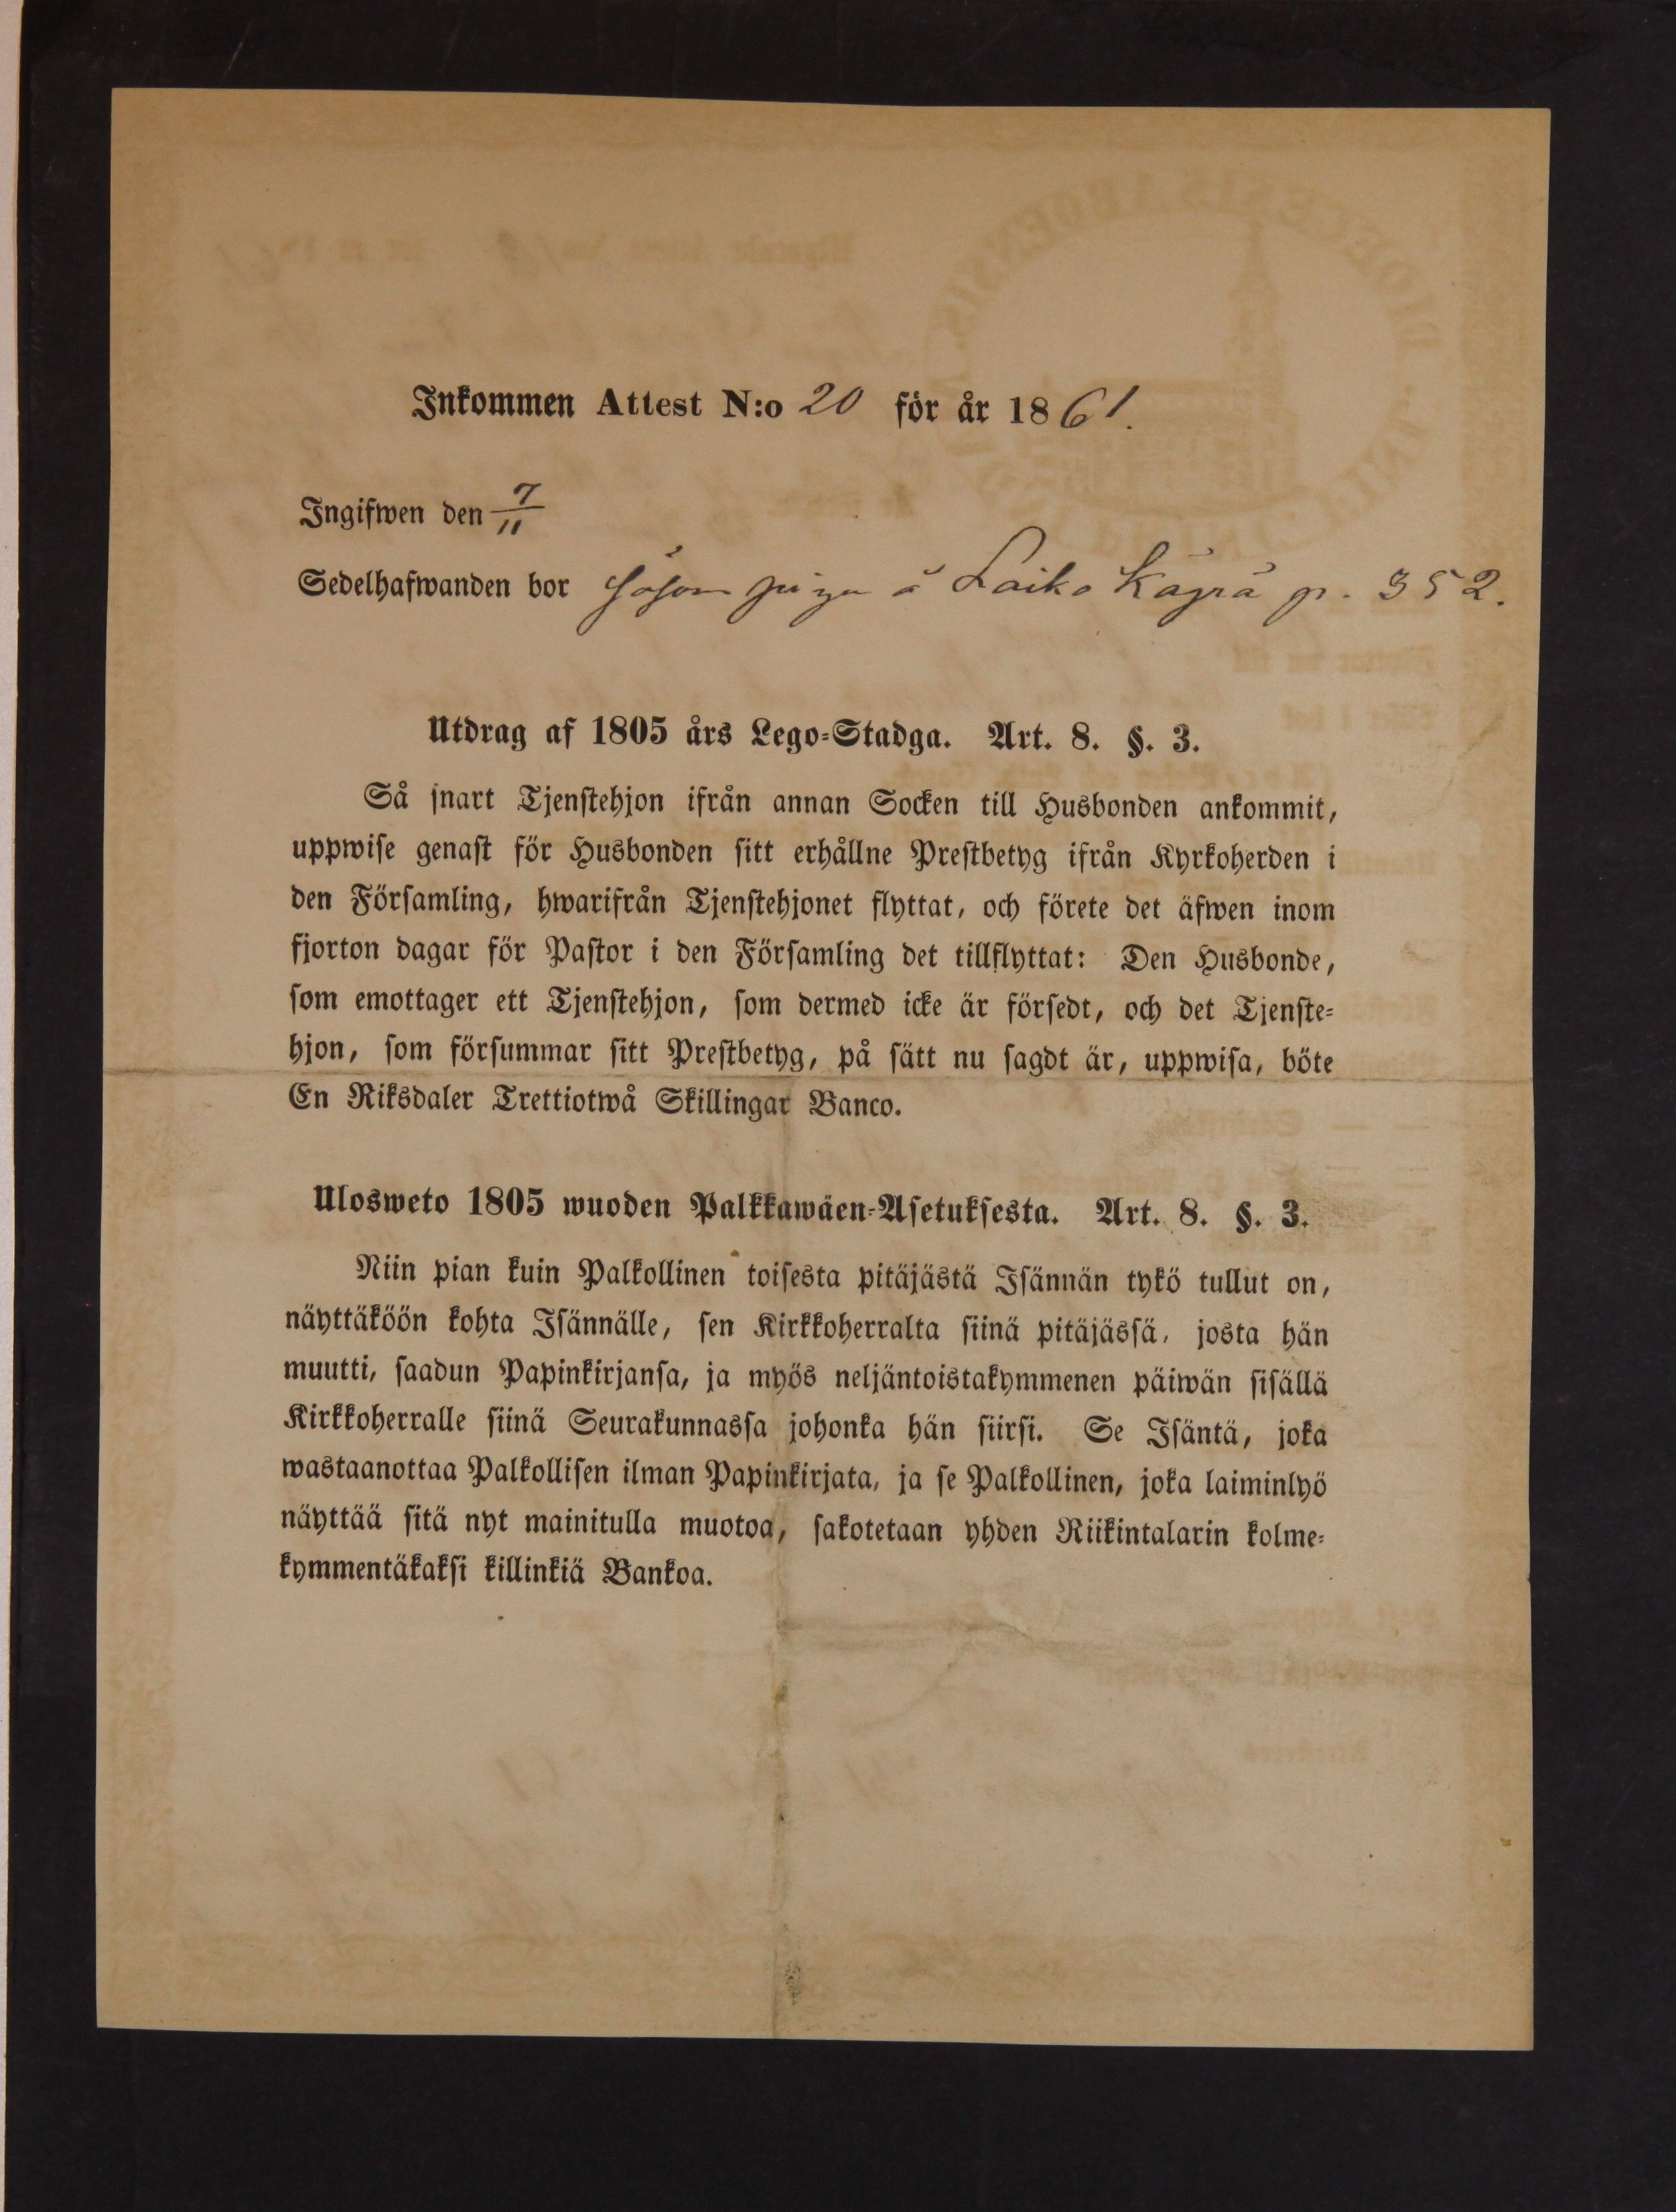 Inkommen Attest N:o 20 för år 1861.
Ingifwen den 7/11
Sedelhafwanden bor såsom piga å Laiko Käyrä p. 352.
Utdrag af 1805 års Lego-Stadga. Art. 8. §. 3.
Så snart Tjenstehjon ifrån annan Socken till Husbonden ankommit,
uppwise genast för Husbonden sitt erhållne Prestbetyg ifrån Kyrkoherden i
den Församling, hwarifrån Tjenstehjonet flyttat, och förete det äfwen inom
fjorton dagar för Pastor i den Församling det tillflyttat: Den Husbonde,
som emottager ett Tjenstehjon, som dermed icke är försedt, och det Tjenste-
hjon, som försummar sitt Prestbetyg, på sätt nu sagdt är, uppwisa, böte
En Riksdaler Trettiotwå Skillingar Banco.
Ulosweto 1805 wuoden Palkkawäen-Asetuksesta. Art. 8. §. 3.
Niin pian kuin Palkollinen toisesta pitäjästä Isännän tykö tullut on,
näyttäköön kohta Isännälle, sen Kirkkoherralta siinä pitäjässä, josta hän
muutti, saadun Papinkirjansa, ja myös neljäntoistakymmenen päiwän sisällä
Kirkkoherralle siinä Seurakunnassa johonka hän siirsi. Se Isäntä, joka
wastaanottaa Palkollisen ilman Papinkirjata, ja se Palkollinen, joka laiminlyö
näyttää sitä nyt mainitulla muotoa, sakotetaan yhden Riikintalarin kolme-
kymmentäkaksi killinkiä Bankoa.